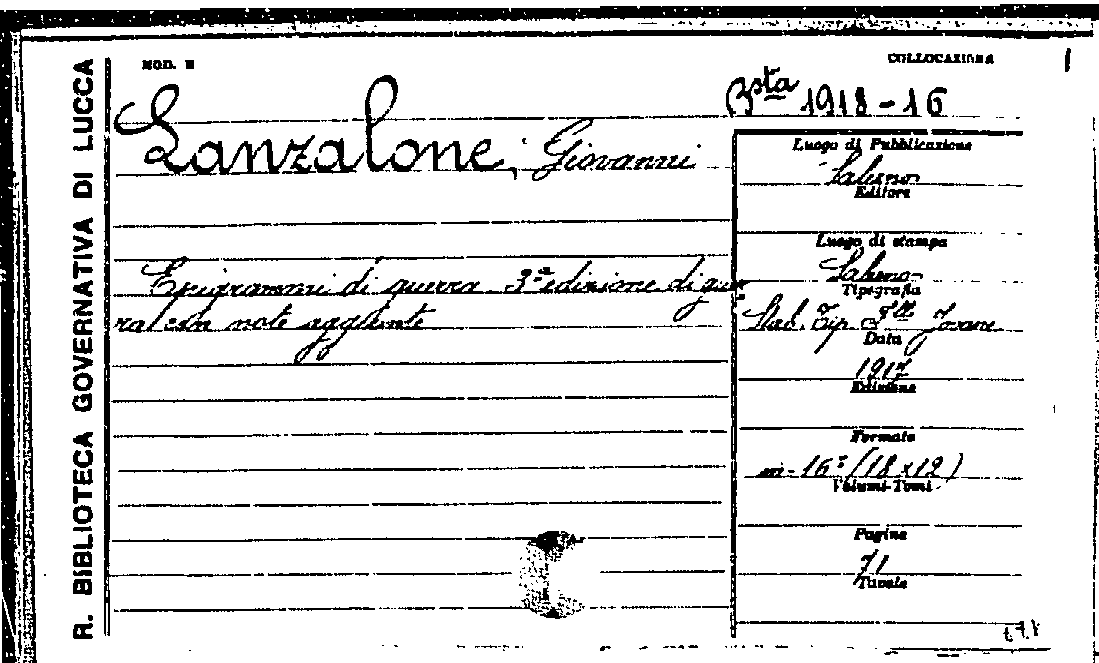 R. BIBLIOTECA GOVERNATIVA DI LUCCA
MOD. E
COLLOCAZIONE
Bsta 1918-16
Lanzalone, Giovanni
Epigrammi di guerra 3a edizione di guer
ra con note aggiunte
Luogo di Pubblicazione
Salerno
Editore
Luogo di stampa
Salerno
Tipografia
Stad. Tip. Flli Jovane
Data
1917
Edizione
Formato
in-16° (18x12)
Volumi-Tomi
Pagine
71
Tavole